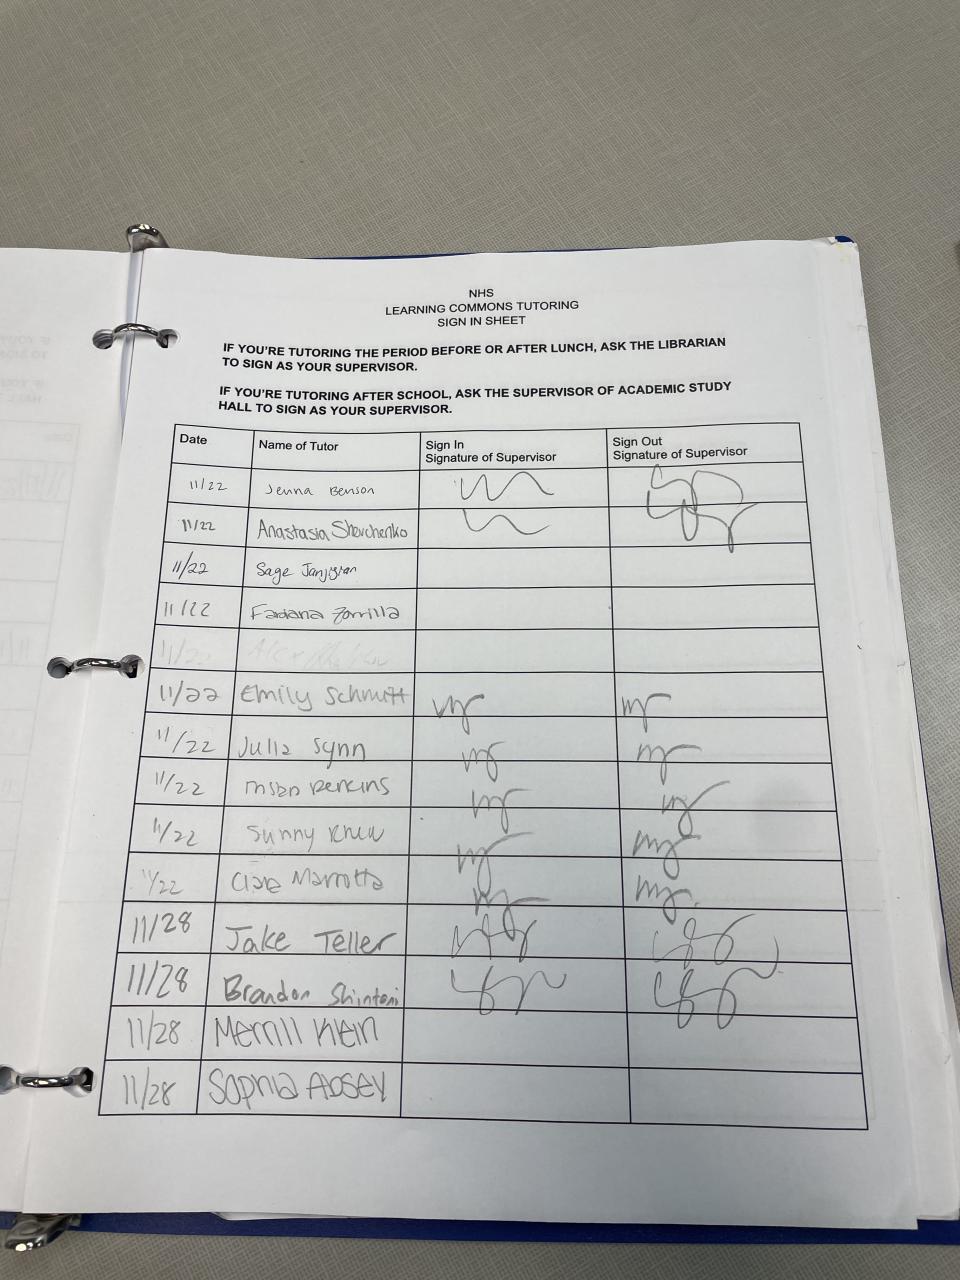 NHS
LEARNING COMMONS TUTORING
SIGN IN SHEET
IF YOU'RE TUTORING THE PERIOD BEFORE OR AFTER LUNCH, ASK THE LIBRARIAN
TO SIGN AS YOUR SUPERVISOR.
IF YOU'RE TUTORING AFTER SCHOOL, ASK THE SUPERVISOR OF ACADEMIC STUDY
HALL TO SIGN AS YOUR SUPERVISOR.
Date Name of Tutor Sign In Sign Out
Signature of Supervisor Signature of Supervisor
11/22 Jenna Benson
11/22 Anastasia Shevchenko
11/22 Sage
11/22 Zorrilla
11/22 Alex
11/22 Emily Schmitt
11/22 Julia Synn
11/22 Perkins
11/22 Sunny
11/22 Clara Marrotta
11/28 Jake Teller
11/28 Brandon Shintani
11/28 Merrill Klein
11/28 Sophia Abbey